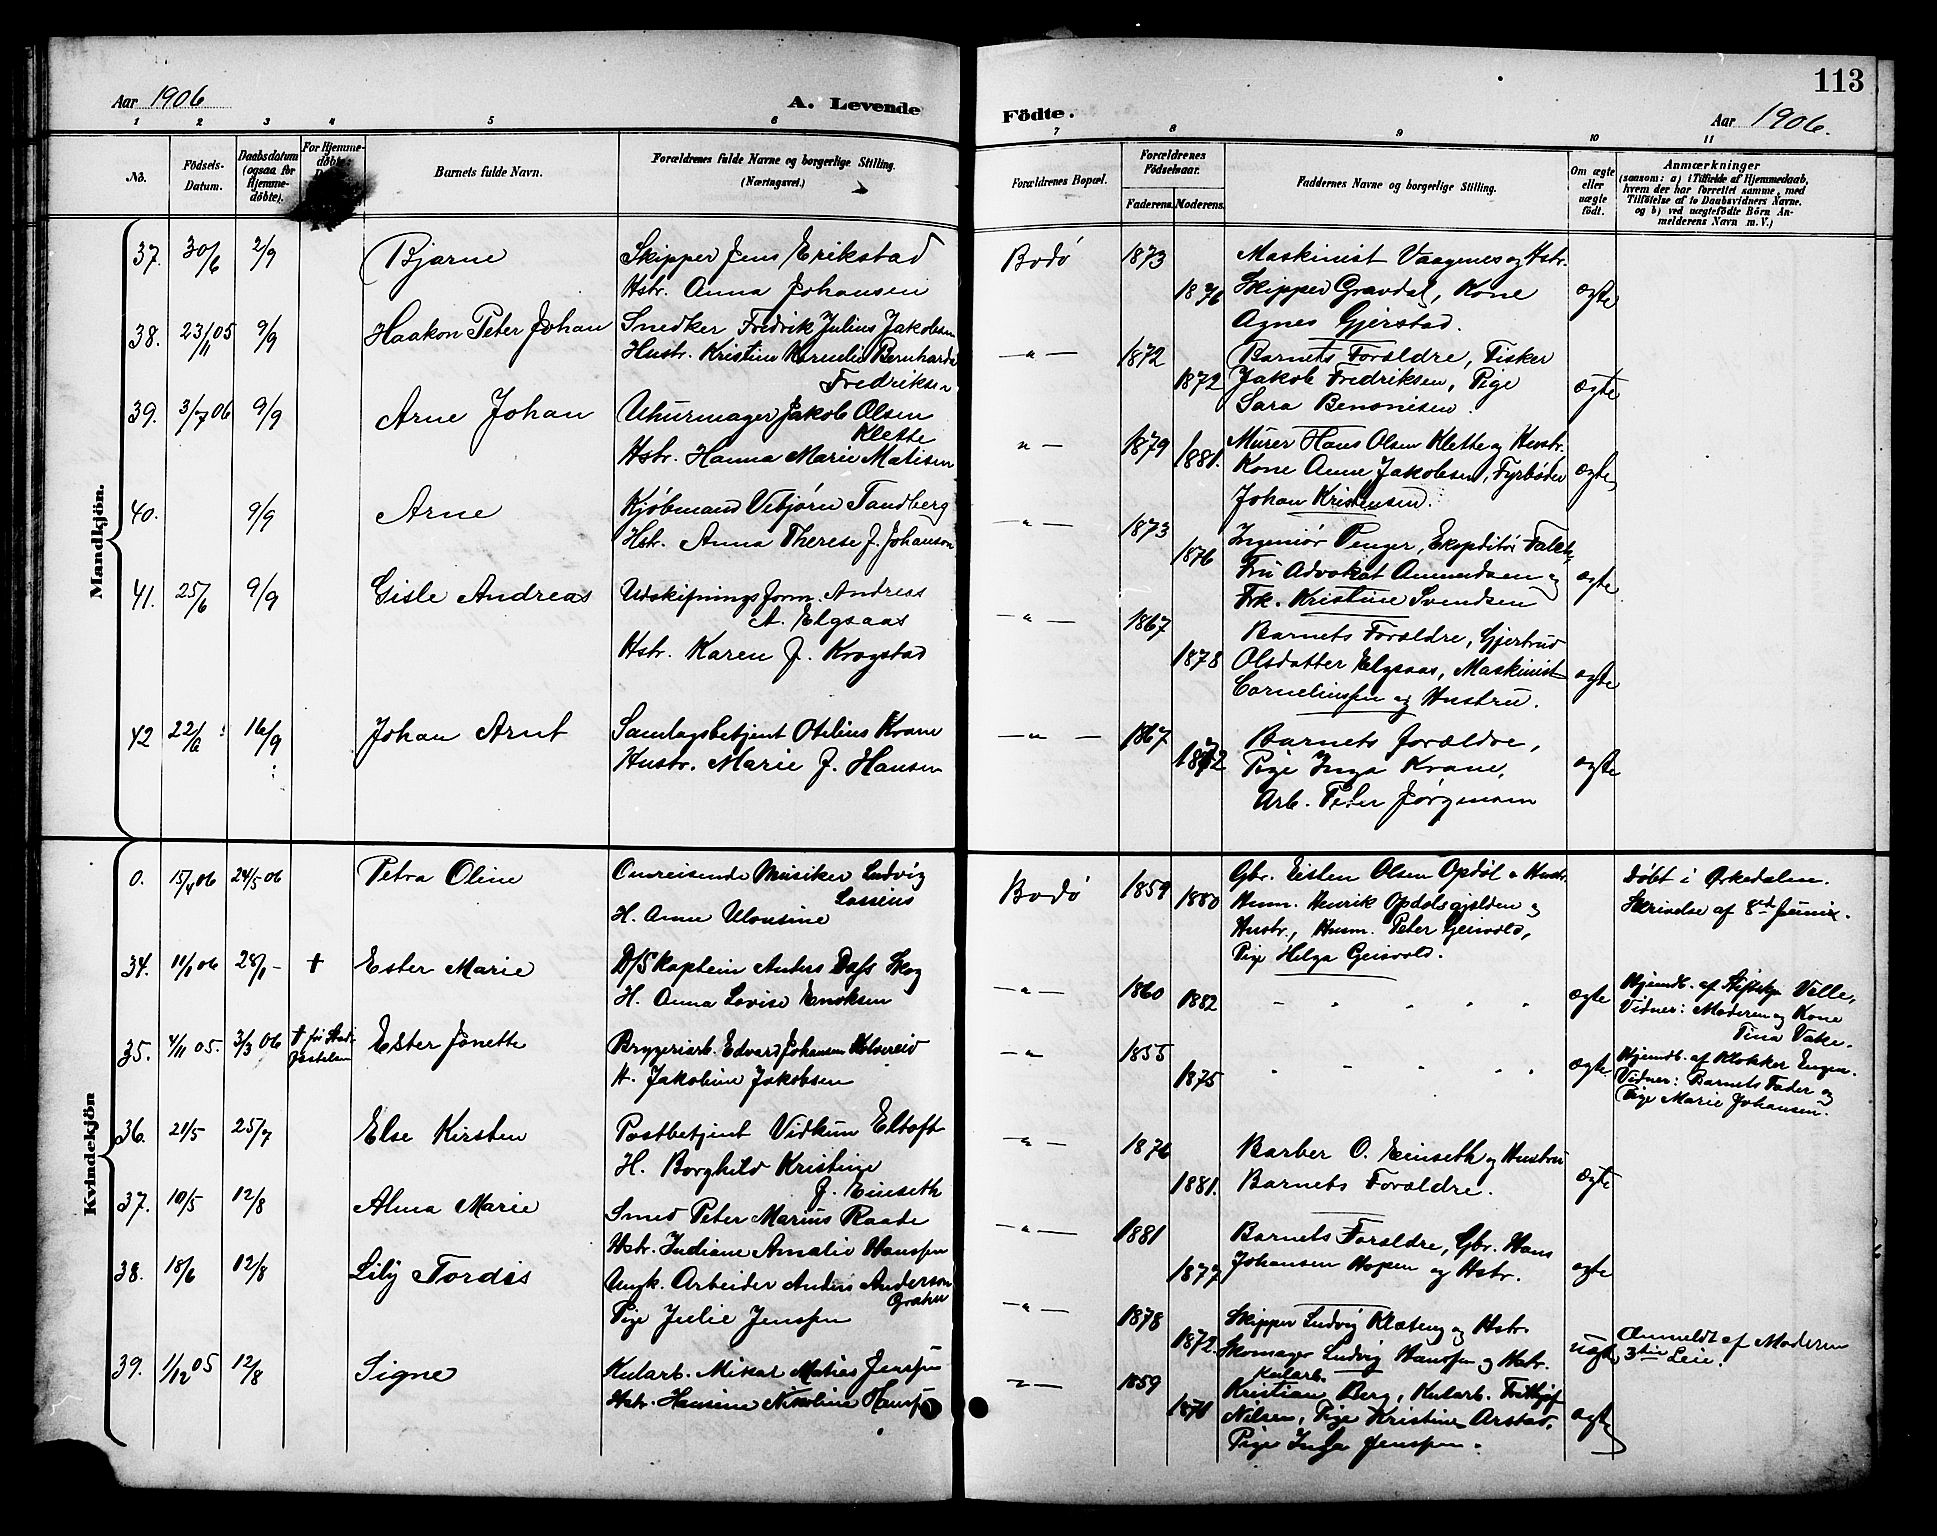 113
Aar 1906
A. Levende
Födte.
Aar 1906.
1 2 3 4 5 6 7 8 9 10 11
No.
Födsels-
Datum.
Daabsdatum
(ogsaa for
Hjemme-
døbte).
For Hjemme-
døbte:
Barnets fulde Navn.
Forældrenes fulde Navne og borgerlige Stilling.
(Næringsvei.)
Forældrenes Bopæl.
Forældrenes
Födselsaar.
Faderens. Moderens.
Faddernes Navne og borgerlige Stilling.
Om ægte
eller
uægte
födt.
Anmærkninger
(saasom: a) i Tilfælde af Hjemmedaab,
hvem der har forrettet samme, med
Tilföielse af to Daabsvidners Navne.
og b) ved uægtefödte Börn An-
melderens Navn m. V.)
Mandkjön.
37. 30/6 2/9 Bjarne
Skipper Jens Erikstad
Hstr. Anna Johansen
Bodø 1873 1876
Maskinist Vaagenes og Hstr.
Skipper Gravdal, Kone
Agnes Gjerstad.
ægte
38. 23/11 05 9/9 Haakon Peter Johan
Snedker Fredrik Julius Jakobsen
Hustr. Kristine Kornelie Bernharda
Fredriksen
—"— 1872 1872
Barnets Forældre, Fisker
Jakob Fredriksen, Pige
Sara Benonisen.
ægte
39. 3/7 06 9/9 Arne Johan
Uhurmager Jakob Olsen
Klette
Hstr. Hanna Marie Matisen
"— 1879 1881.
Murer Hans Olsen Klette og Hustr.
Kone Anne Jakobsen, Fyrbøder
Johan Kristensen.
ægte
40. 9/9 Arne
Kjøbmand Vebjørn Tandberg
Hstr. Anna Therese J. Johanson
—"— 1873 1876
Ingeniør Penger, Ekspeditør Falch,
Fru Advokat Amundsen og
Frk. Kristine Svendsen
ægte
41. 25/6 9/9 Gisle Andreas
Udskifningsform. Andreas
A. Elgsaas
Hstr. Karen J. Krogstad
—"— 1867 1878
Barnets Forældre, Gjertrud
Olsdatter Elgsaas, Maskinist
Corneliussen og Hustru.
ægte
42 22/6 16/9 Johan Arnt
Samlagsbetjent Otelius Krane
Hustr. Marie J. Hansen
—"— 1867 1872
Barnets forældre,
Pige Inga Krane,
Arb. Peter Jørgensen
ægte
Kvindekjön
0. 15/4 06 24/5 06 Petra Oline
Omreisende Musiker Ludvig
Lassens
H. Anne Ulonsine
Bodø 1859 1880
Gbr. Eisten Olsen Opdøl o Hustr.
Husm. Henrik Opdolsgjelden og
Hustr., Husm. Peter Geisvold,
Pige Helga Geisvold.
Døbt i Ørkedalen.
Skrivelse af 8de Juni.
34. 11/1 06 28/1 — † Ester Marie
D/S Kaptein Anders Dass Skog
H. Anna Lovise Enoksen
—"— 1860 1882
" " " " "
ægte
Hjemdb. af Stiftskp. Velle,
Vidner: Moderen og Kone
Tina Vake.
35. 4/11 05. 3/3 06 † for Stadf-
Ester Jonette
Bryggeriarb. Edvard Johansen Holvereid
H. Jakobine Jakobsen
—" 1855 1875
" " " " "
ægte
Hjemdb. af Klokker Engen.
Vidner: Barnets Fader og
Pige Marie Johansen.
36. 21/5 25/7 Else Kirsten
Postbetjent Vidkun Eltoft
H. Borghild Kristine
J. Einseth
—"— 1876 1881.
Barber O. Einseth og Hustru
Barnets Forældre.
ægte
37. 10/5 12/8 Alma Marie
Smed Peter Marius Raade
Hstr. Indiane Amalie Hanssen
—"— 1881 1877
Barnets Forældre, Gbr. Hans
Johansen Hopen og Hstr.
ægte
38. 18/6 12/8 Lily Tordis
Ungk. Arbeider Anders Anderson
Pige Julie Jenssen
—"— 1878 1872.
Skipper Ludvig Klæteng og Hstr.
Skomager Ludvig Hanssen og Hstr.
uægte
Anmeldt af Moderen
3die Leie.
39. 1/12 05 12/8 Signe
Kularb. Mikal Matias Jenssen
Hstr. Hansine Nikoline Hanss
"— 1859 1870
Kularb.
Kristian Berg, Kularb. Fritthjof
Nilsen, Pige Kristine Arstad,
Pige Inga Jenssen.
ægte